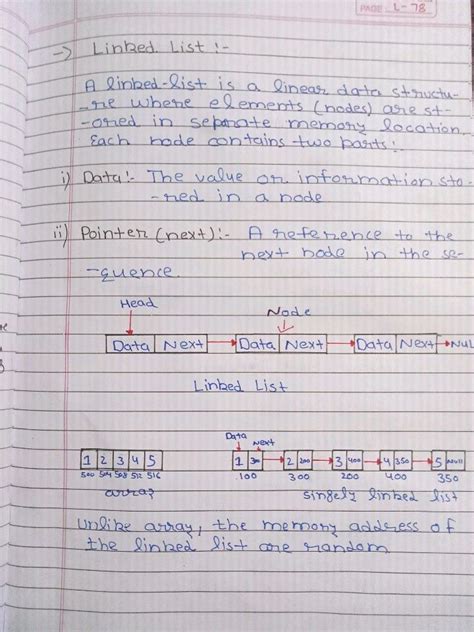 PAGE L-78
→ Linked List :-
A linked-list is a linear data structu-
-re where elements (nodes) are st-
-ored in seperate memory location.
Each node contains two parts:-
i) Data:- The value or information sto-
-red in a node
ii) Pointer (next):- A reference to the
next node in the se-
-quence.
Head Node
Data Next → Data Next → Data Next → NULL
Linked List
Data Next
1 2 3 4 5
500 504 508 512 516
array
1 300 → 2 200 → 3 400 → 4 350 → 5 Null
100 300 200 400 350
singely linked list
Unlike array, the memory address of
the linked list are random